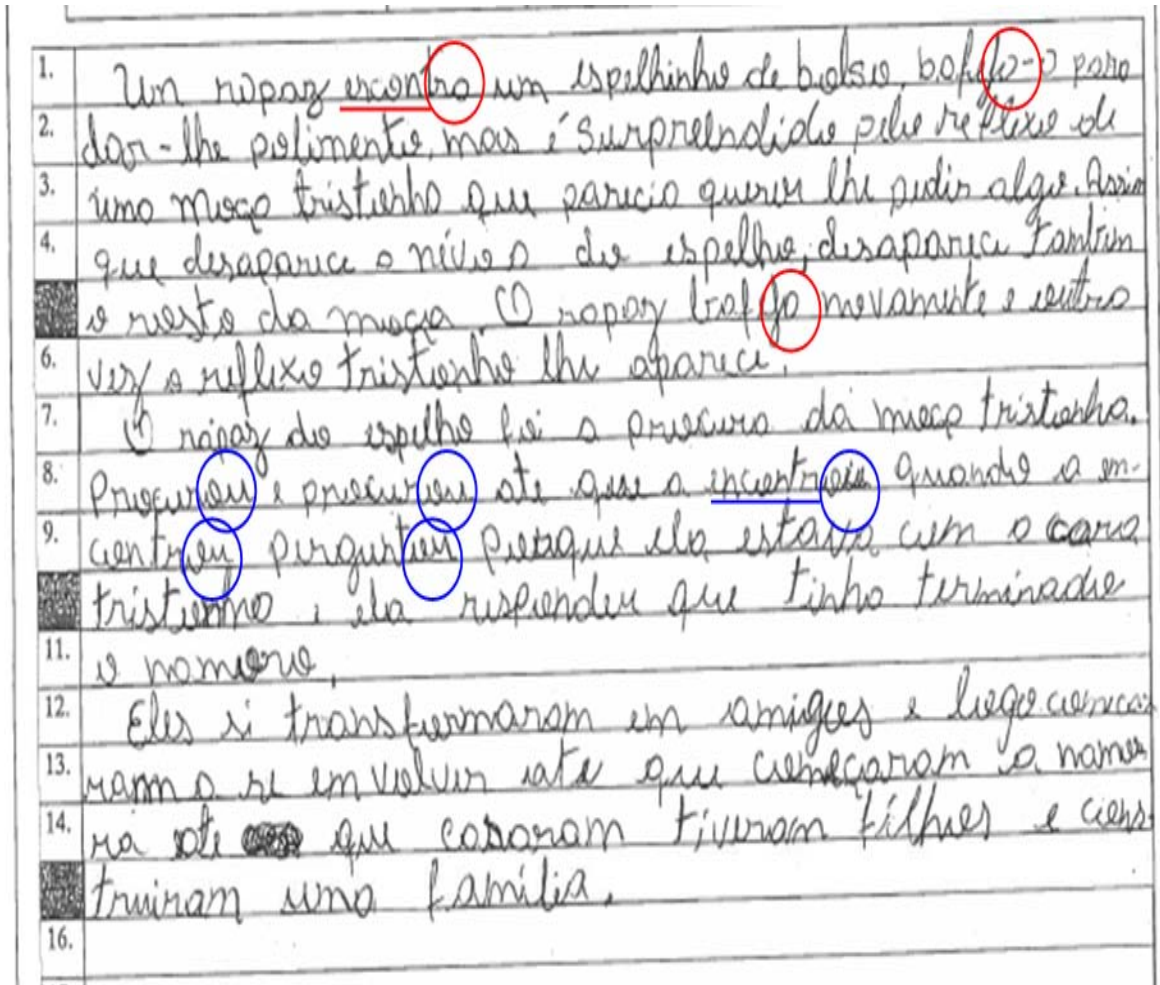 1. Um rapaz encontra um espelhinho de bolso, bafeja-o para
2. dar-lhe polimento, mas é surpreendido pelo reflexo de
3. uma moça tristonha que parecia querer lhe pedir algo. Assim
4. que desaparece a névoa do espelho, desaparece também
o rosto da moça. O rapaz bafeja novamente e outra
6. vez o reflexo tristonho lhe aparece.
7. O rapaz do espelho foi a procura da moça tristonha.
8. Procurou e procurou ate que a encontrou quando a en-
9. controu perguntou porque ela estava com a cara
tristonha, ela responder que tinha terminado
11. o namoro.
12. Eles si transformaram em amigos e logo começa
13. ramm a se em volver ate que começaram a namo
14. ra ate que casaram tiveram filhos e cons-
truiram uma família.
16.